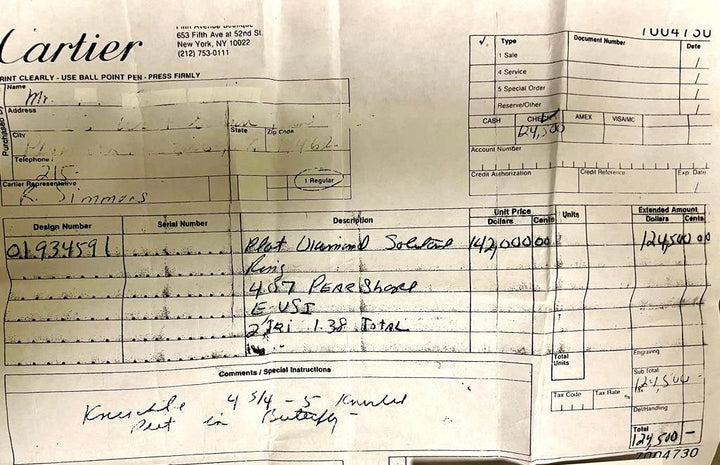 Cartier
653 Fifth Ave at 52nd St.
New York, NY 10022
(212) 753-0111
PRINT CLEARLY - USE BALL POINT PEN - PRESS FIRMLY
Purchased By
Name
Mr.
Address
City
State
Zip Code
Telephone
215-
Cartier Representative
R. Simmons
1 Regular
Type
Document Number
Date
1 Sale
4 Service
5 Special Order
Reserve/Other
CASH CHECK AMEX VISA/MC
124,500
Account Number
Credit Authorization Credit Reference Exp. Date
Design Number Serial Number Description Unit Price Dollars Cents Units Extended Amount Dollars Cents
01934591 Plat Diamond Solitaire 142,000 00 124,500 00
Ring
4.07 PEAR Shape
E-VS1
2 TRI 1.38 Total
Total Units
Engraving
Sub Total
124,500
Comments / Special Instructions
4 3/4 - 5
Put in Butterfly -
Tax Code Tax Rate
Del/Handling
Total
124,500 -
7004730